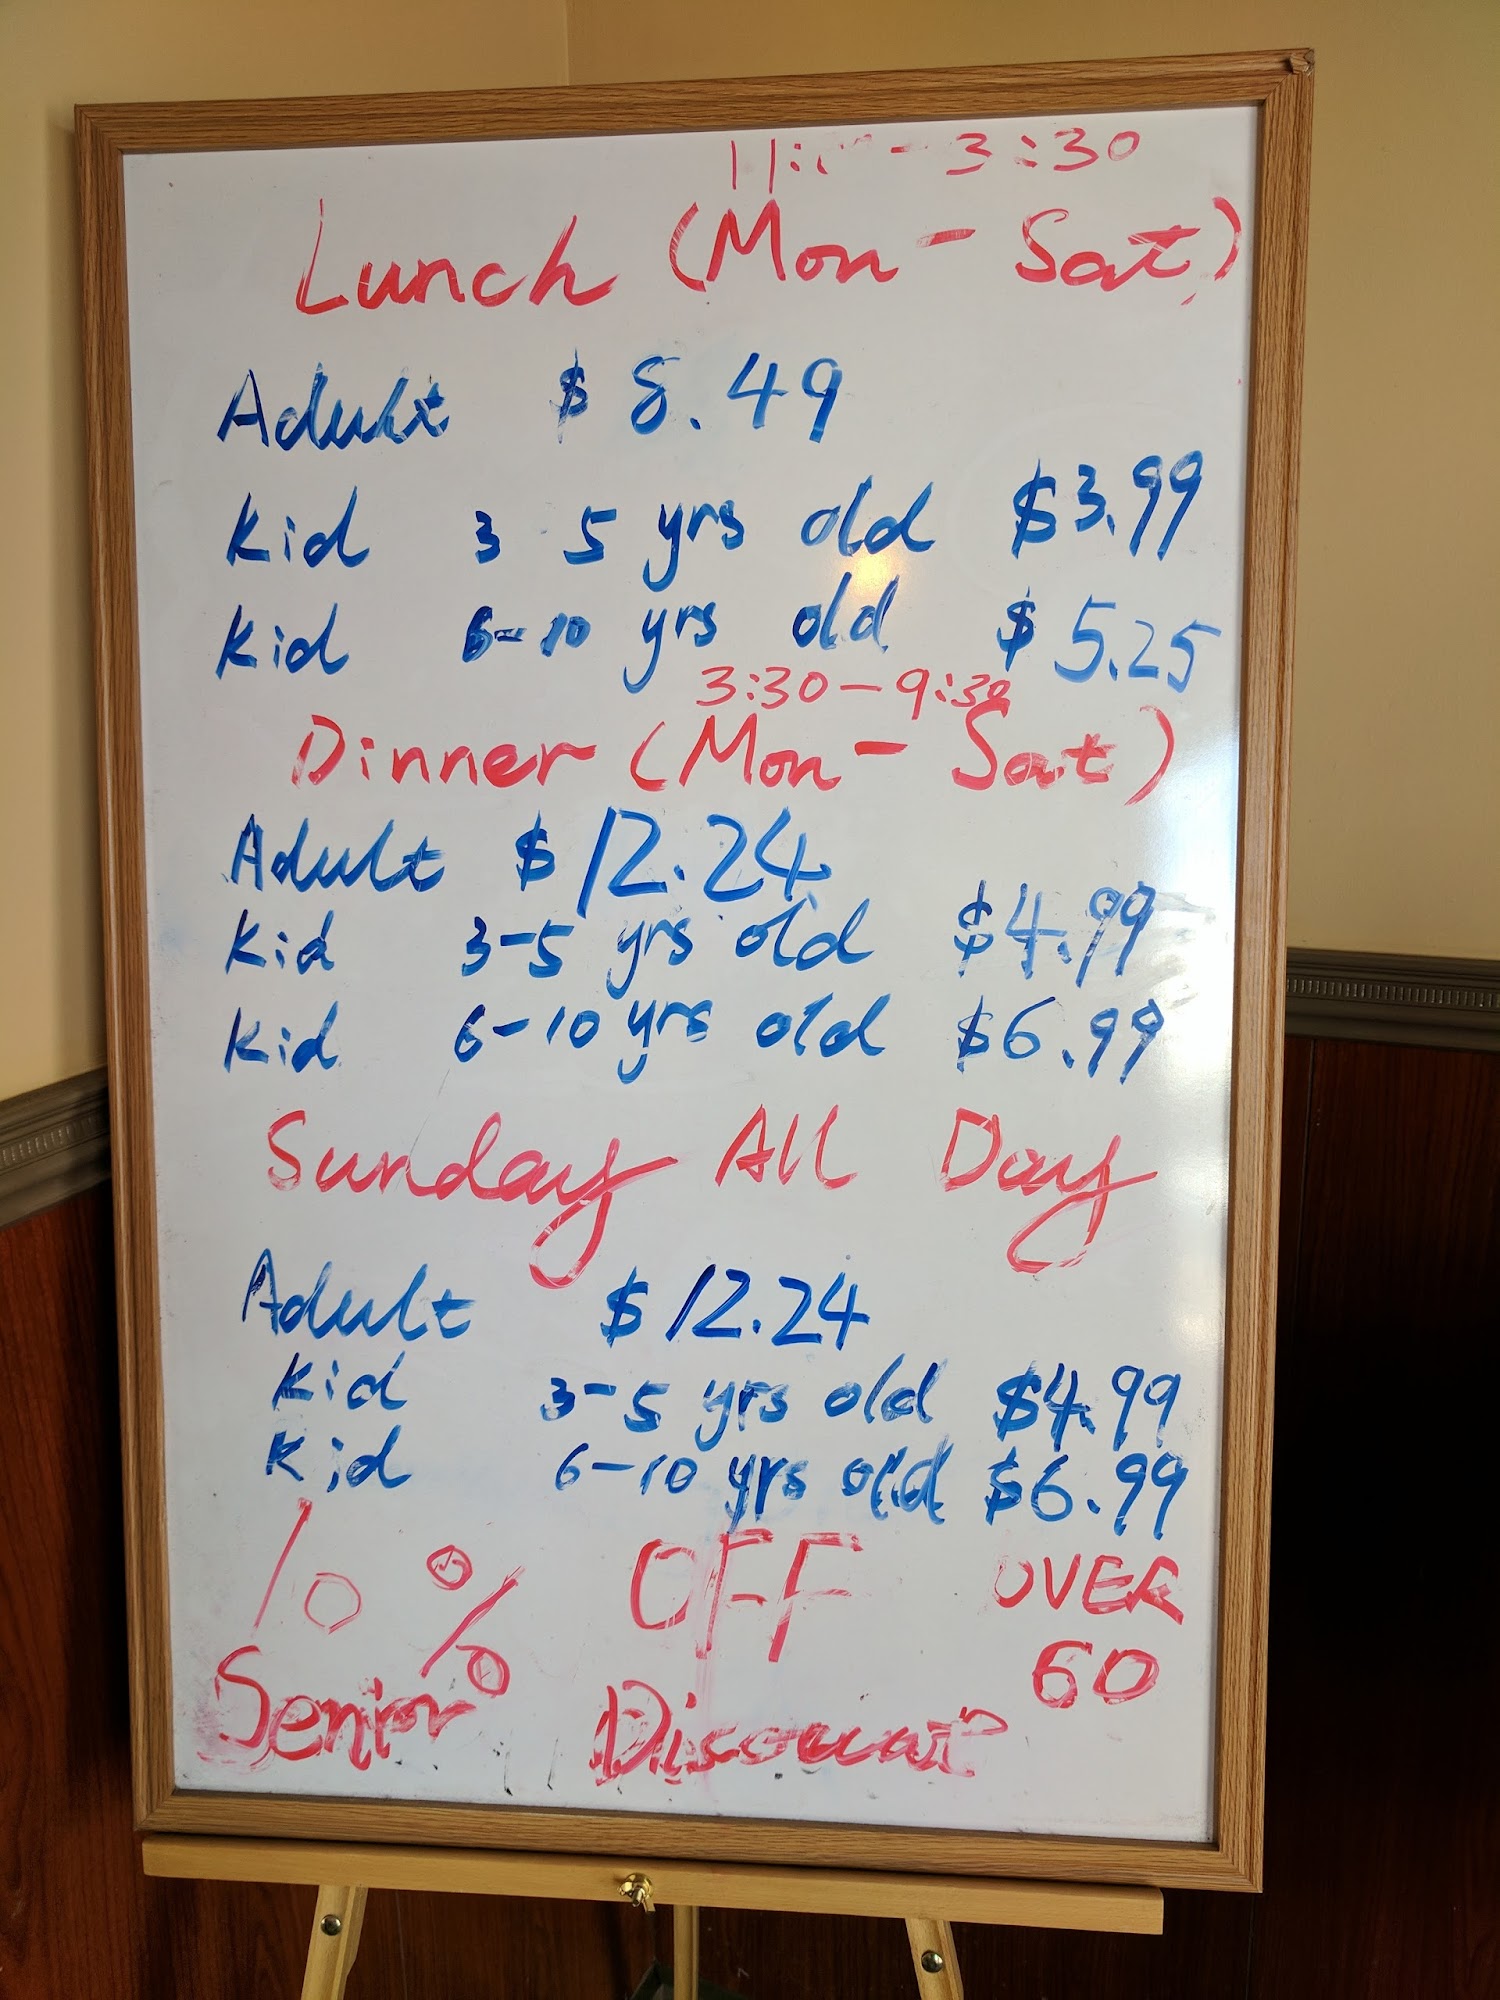 11: - 3:30
Lunch (Mon - Sat)
Adult $8.49
Kid 3 5 yrs old $3.99
Kid 6-10 yrs old $5.25
3:30-9:30
Dinner (Mon - Sat)
Adult $12.24
Kid 3-5 yrs old $4.99
Kid 6-10 yrs old $6.99
Sunday All Day
Adult $12.24
Kid 3-5 yrs old $4.99
Kid 6-10 yrs old $6.99
10% OFF OVER
60
Senior Discount